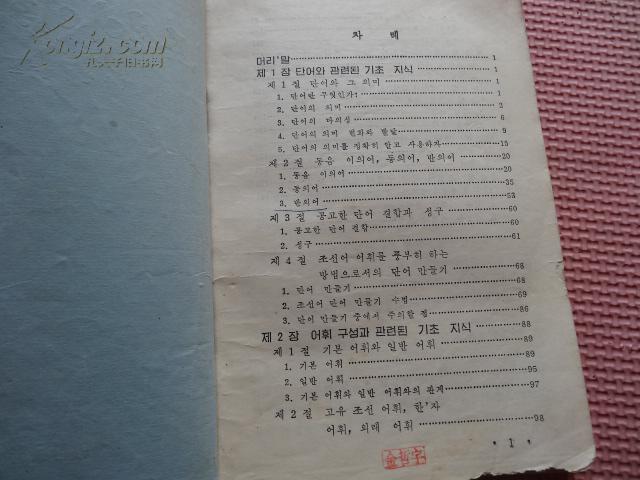 Kongfz.com
孔夫子旧书网
차 례
머리'말 1
제 1 장 단어와 관련된 기초 지식 1
제 1 절 단어와 그 의미 1
1. 단어란 무엇인가? 1
2. 단어의 의미 2
3. 단어의 다의성 6
4. 단어의 의미 변화와 발달 9
5. 단어의 의미를 정확히 알고 사용하자 15
제 2 절 동음 이의어, 동의어, 반의어 20
1. 동음 이의어 20
2. 동의어 35
3. 반의어 53
제 3 절 공고한 단어 결합과 성구 60
1. 공고한 단어 결합 60
2. 성구 61
제 4 절 조선어 어휘를 풍부히 하는
방법으로서의 단어 만들기 68
1. 단어 만들기 68
2. 조선어 단어 만들기 수법 69
3. 단어 만들기 중에서 주의할 점 86
제 2 장 어휘 구성과 관련된 기초 지식 88
제 1 절 기본 어휘와 일반 어휘 89
1. 기본 어휘 89
2. 일반 어휘 95
3. 기본 어휘와 일반 어휘와의 관계 97
제 2 절 고유 조선 어휘, 한'자
어휘, 외래 어휘 98
• 1 •
金哲宇